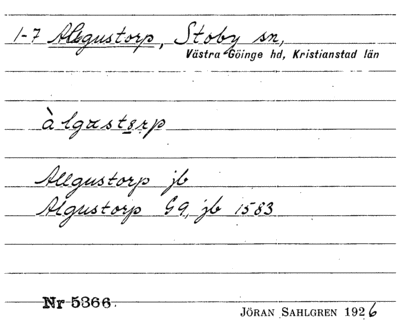 1-7 Allgustorp, Stoby sn,
Västra Göinge hd, Kristianstad län
àlgastərp
Allgustorp jb
Algustorp G9, jb 1583
Nr 5366.
JÖRAN SAHLGREN 1926